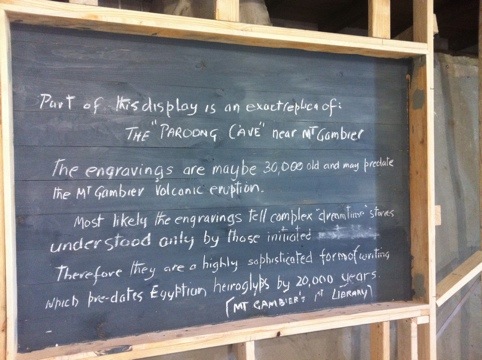 Part of this display is an exact replica of:
THE "PAROONG CAVE" near MT Gambier
The engravings are maybe 30,000 old and may predate
the MT Gambier Volcanic eruption.
Most likely the engravings tell complex "dreamtime" stories
understood only by those initiated
Therefore they are a highly sophisticated form of writing
which pre-dates Egyptian heiroglyps by 20,000 years
(MT GAMBIER'S 1ST LIBRARY)